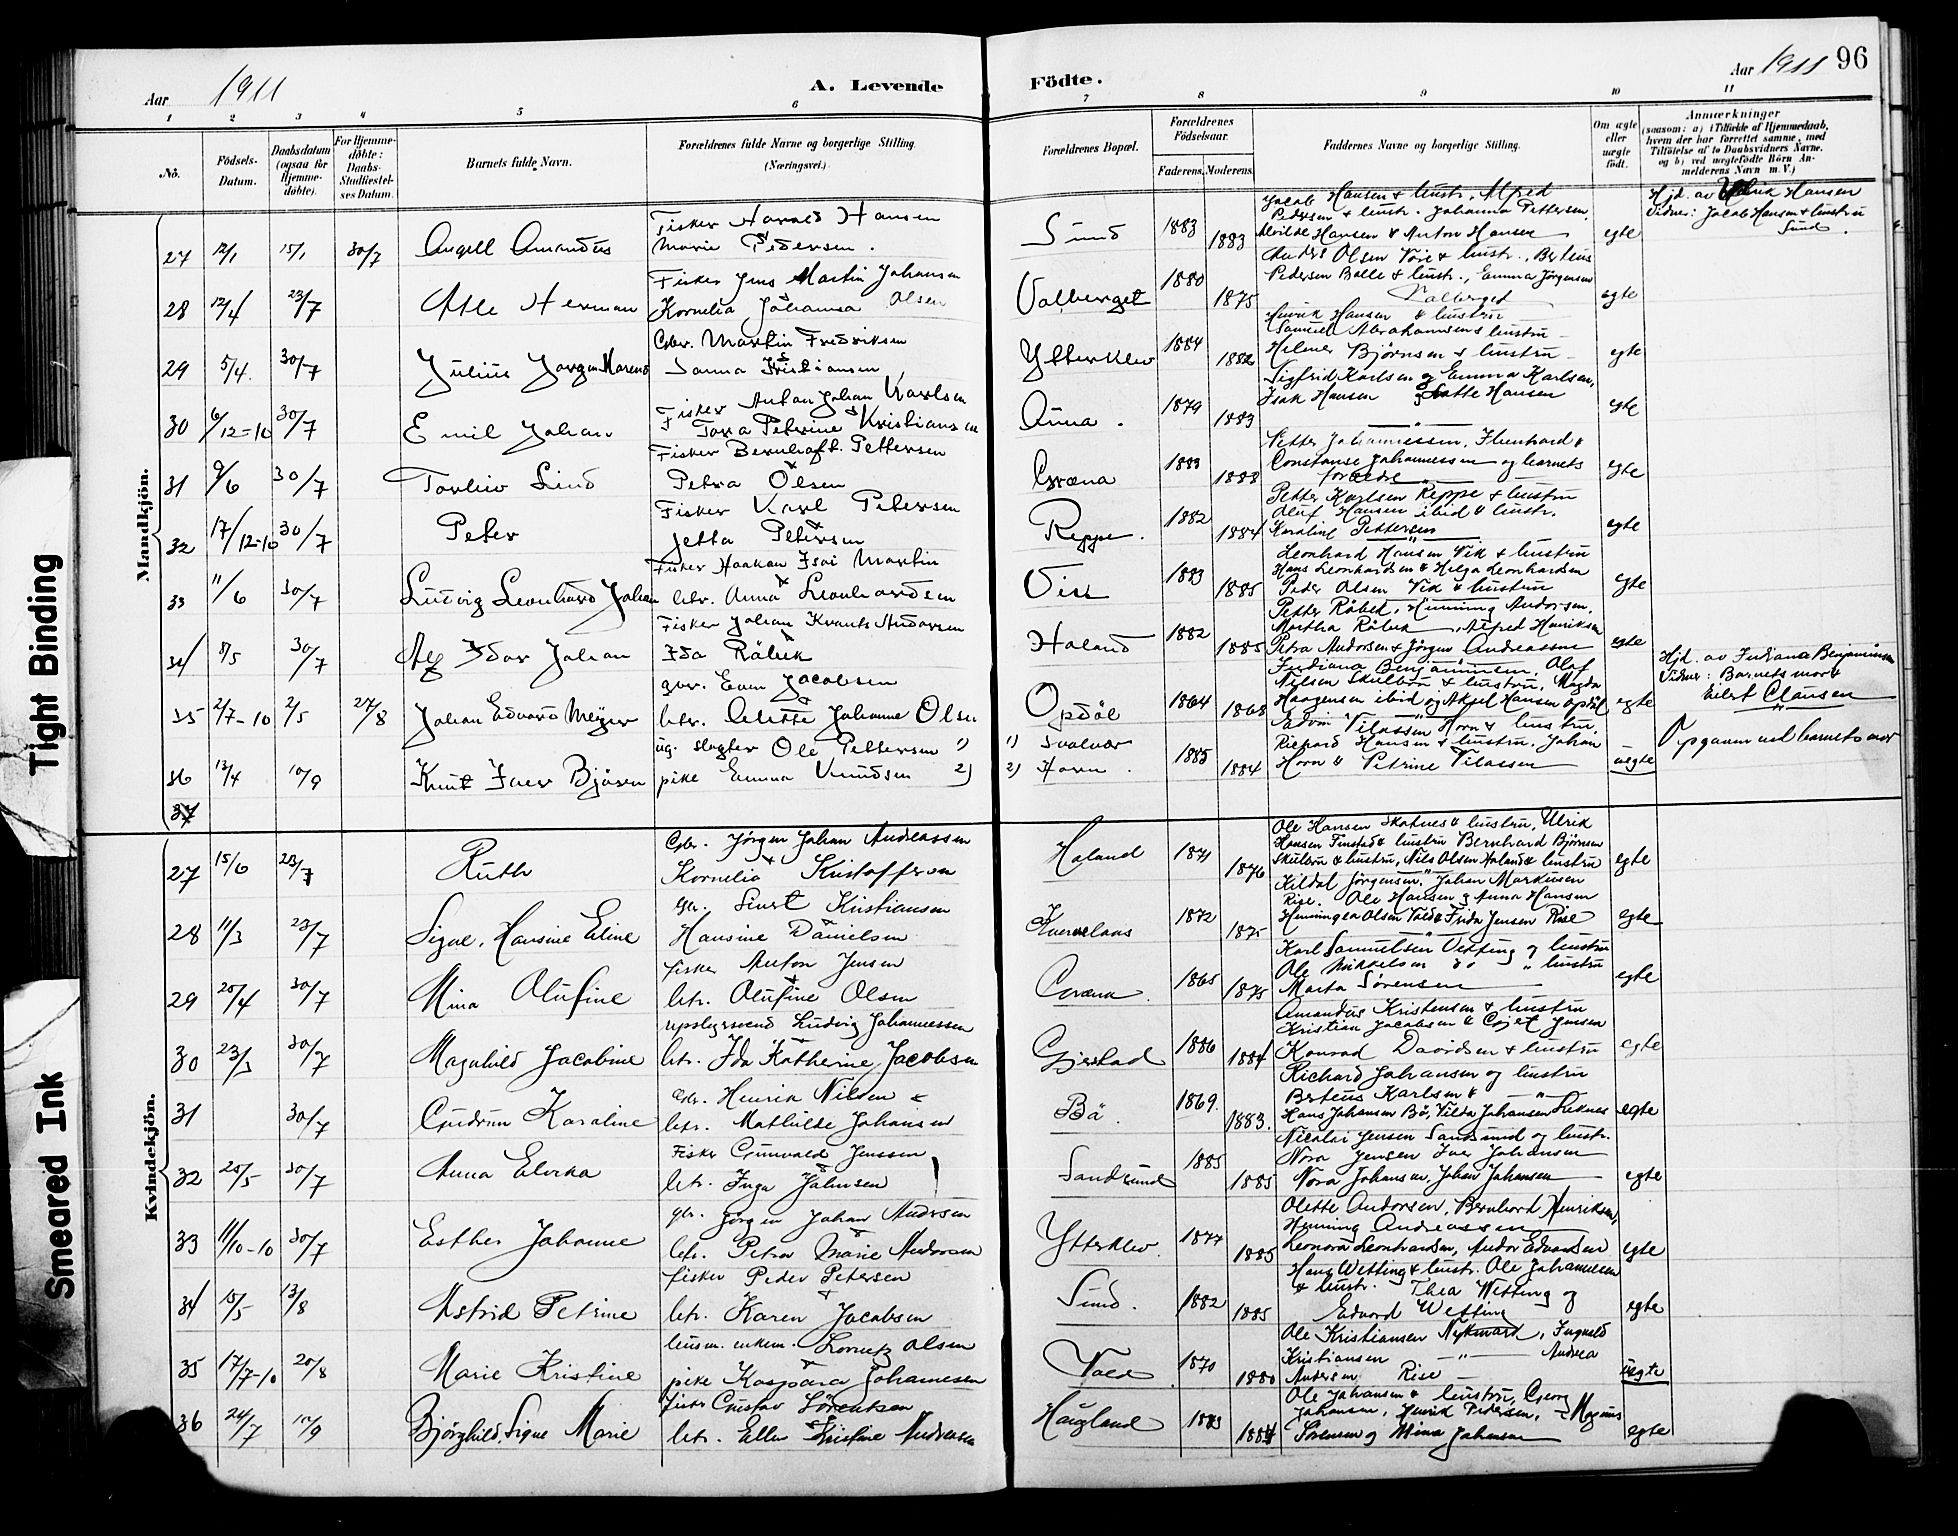 Aar 1911
A. Levende Födte.
Aar 1911 96
1 2 3 4 5 6 7 8 9 10 11
No.
Födsels-Datum.
Daabsdatum (ogsaa for Hjemme-döbte).
For Hjemme-döbte: Daabs-Stadfæstel-ses Datum.
Barnets fulde Navn.
Forældrenes fulde Navne og borgerlige Stilling (Næringsvei.)
Forældrenes Bopæl.
Forældrenes Födselsaar.
Faderens. Moderens.
Faddernes Navne og borgerlig Stilling.
Om ægte eller uægte födt.
Anmærkninger
(saasom: a) i Tilfælde af Hjemmedaab, hvem der har forrettet samme, med Tilföielse af to Daabsvidners Navne. og b) ved uægtefödte Börn An-melderens Navn m. V.)
Mandkjön.
27 12/1 15/1 30/7 Angell Amandus
Fisker Harald Hansen
Marie Pedersen.
Sund 1883 1883
Jacob Hansen & hustr, Alfred
Pedersen & hustr. Johanna Pettersen,
Hansen & Anton Hansen
egte
Hjd. av Hansen
Vidner: Jacob Hansen & hustru
Sund.
28 12/4 23/7 Atle Herman
Fisker Jens Martin Johansen
Kornelia Johansa Olsen
Valberget 1880 1875
Anders Olsen Vöre & hustr., Berteus
Pedersen Balle & hustr., Emma Jörgensen
Valberget
egte
29 5/4. 30/7 Julius Jörgen
Gbr. Martin Fredriksen
Sanna Kristiansen
Ytterklev 1884 1882
Henrik Hansen & hustru
Samuel Abrahamsen & hustru
Helmer Bjørnsen & hustru
egte
30 6/12-10 30/7 Emil Johan
Fisker Anton Johan Karlsen
Tora Petrine Kristiansen
Auna. 1879 1883
Sigfrid Karlsen og Emma Karlsen,
Isak Hansen Hansen
egte
31 9/6 30/7 Torleiv Lind
Fisker Bernhoft Pettersen
Petra Olsen
Græna 1883 1888
Petter Johannessen,
Constanse Johannessen og barnets
forældre
egte
32 17/12-10 30/7 Peter
Fisker Karl Petersen
Jetta Petersen
Reppe. 1882 1884
Petter Karlsen Reppe & hustru
Oluf Hansen ibid & hustr.
Karoline Pettersen
egte
33 11/6 30/7 Ludvig Leonhard Johan
Fisker Haakon Isai Martin
htr. Anna Leonhardsen
Vik 1883 1885
Leonhard Hansen Vik & hustru
Hans Leonhardsen & Helga Leonhardsen
Peder Olsen Vik & hustru
egte
34 8/5 30/7 Alf Johan
Fisker Johan Krants Andorsen
Ida Råbek
Holand 1882 1885
Petter Råbek, Henning Andorsen,
Martha Råbek, Alfred Henriksen
Petra Andorsen & Jörgen Andreassen
egte
35 2/7-10 2/5 27/8 Johan Edvard Meyer
gbr. Even Jacobsen
htr. Olette Johanne Olsen
Opdöl 1864 1868
Benjaminsen, Olaf
Nilsen Skulbru & hustru, Magda
Haagensen ibid og Aksel Hansen Opdöl
egte
Hjd. av Benjaminsen
Vidner: Barnets mor &
Eilert Clausen
36 13/4 10/9 Knut Iver Bjåren
ug. slagter Ole Pettersen 1)
pike Emma Knudsen 2)
1) Svolvær
2) Horn. 1885 1884
Edvin Vilassen Horn & hustru,
Richard Hansen & hustru. Johan
Horn & Petrine Vilassen
uegte
Opgaven ved barnets mor
37
Kvindekjön.
27 15/6 23/7 Ruth
Gbr. Jörgen Johan Andreassen
Kornelia Kristoffersen
Holand 1871 1876
Ole Hansen Skotnes & hustru, Ulrik
Hansen Finstad & hustru Bernhard Bjørnsen
Skulbru & hustru, Nils Olsen Holand & hustru
egte
28 11/3 23/7 Signe, Hansine Eline
Gbr. Sivert Kristiansen
Hansine Danielsen
1872 1875
Kildal Jörgensen, Johan Markusen
Rise. Ole Hansen & Anna Hansen
Henningea Olsen & Frida Jensen Rise
egte
29 25/4 30/7 Mina Olufine
fisker Anton Jensen
htr. Olufine Olsen
Græna. 1865 1875
Karl Samuelsen Vetting og hustru
Ole Mikkelsen do " hustru
Marta Sörensen
egte
30 23/3 30/7 Magnhild Jacobine
Ludvig Johannessen
htr. Ida Katherine Jacobsen
Gjerstad 1886 1884
Amandus Kristensen & hustru
Kristian Jacobsen & Jensen
Konrad Davidsen & hustru
egte
31 30/7 Gudrun Karoline
Gbr. Henrik Nilsen &
htr. Mathilde Johansen
Bö. 1869. 1883.
Richard Johansen og hustru
Berteus Karlsen & — " —
Hans Johansen Bö, Vilda Johansen Leknes
egte
32 25/5 30/7 Anna Elvira
Fisker Grunvald Jenssen
htr. Inga Johnsen
Sandsund 1885 1885
Nicolai Jensen Sandsund og hustr.
Nora Jensen Iver Johansen
Nora Johansen, Johan Johansen
egte
33 11/10-10 30/7 Esther Johanne
gbr. Jörgen Johan Andersen
htr. Petra Marie Andorsen
Ytterklev. 1877 1885
Olette Andorsen, Bernhard Henriksen,
Henning Andreassen
Leonora Leonhardsen, Andor Edvardsen
egte
34 15/5 13/8 Astrid Petrine
fisker Peder Petersen
htr. Karen Jacobsen
Sund. 1882 1885
Hans Wetting & hustr. Ole Johannesen
& hustr. Thea Wetting og
Edvard Wetting
egte
35 17/7-10 20/8 Marie Kristine
enkem. Lorentz Olsen
pike Kaspara Johannesen
Vold 1870 1880
Ole Kristiansen Nykmark, Ingvald
Kristiansen — " — Andrea
Andersen Rise
uegte
36 24/7 10/9 Bjørghild, Signe Marie
fisker Gustav Sörensen
htr. Ellen Kristine Andreasen
Haugland 1883 1884
Ole Johansen & hustru, Georg
Johansen, Henrik Pedersen, Magnus
Sörensen og Mina Johansen
egte
Tight Binding
Smeared Ink